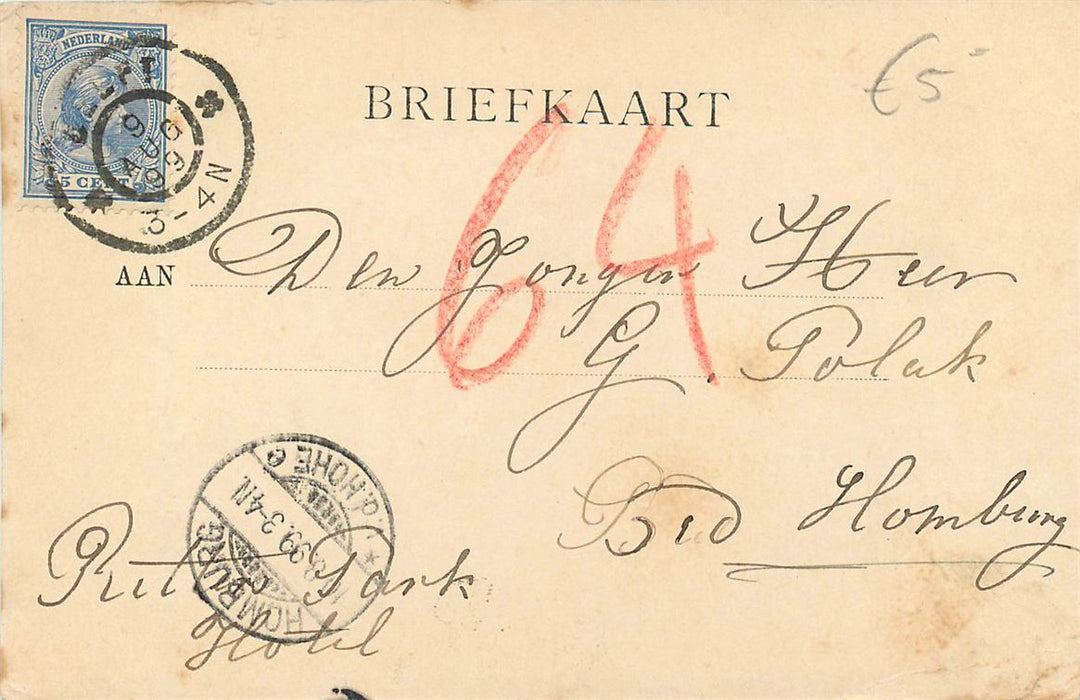 NEDERLAND
5 CENT
9
AUG
99
3-4N
€5
BRIEFKAART
64
AAN Den Jongen Heer
G. Polak
Bad Homburg
HOMBURG v.d. HÖHE
8.99.3-4N.
Park
Hotel